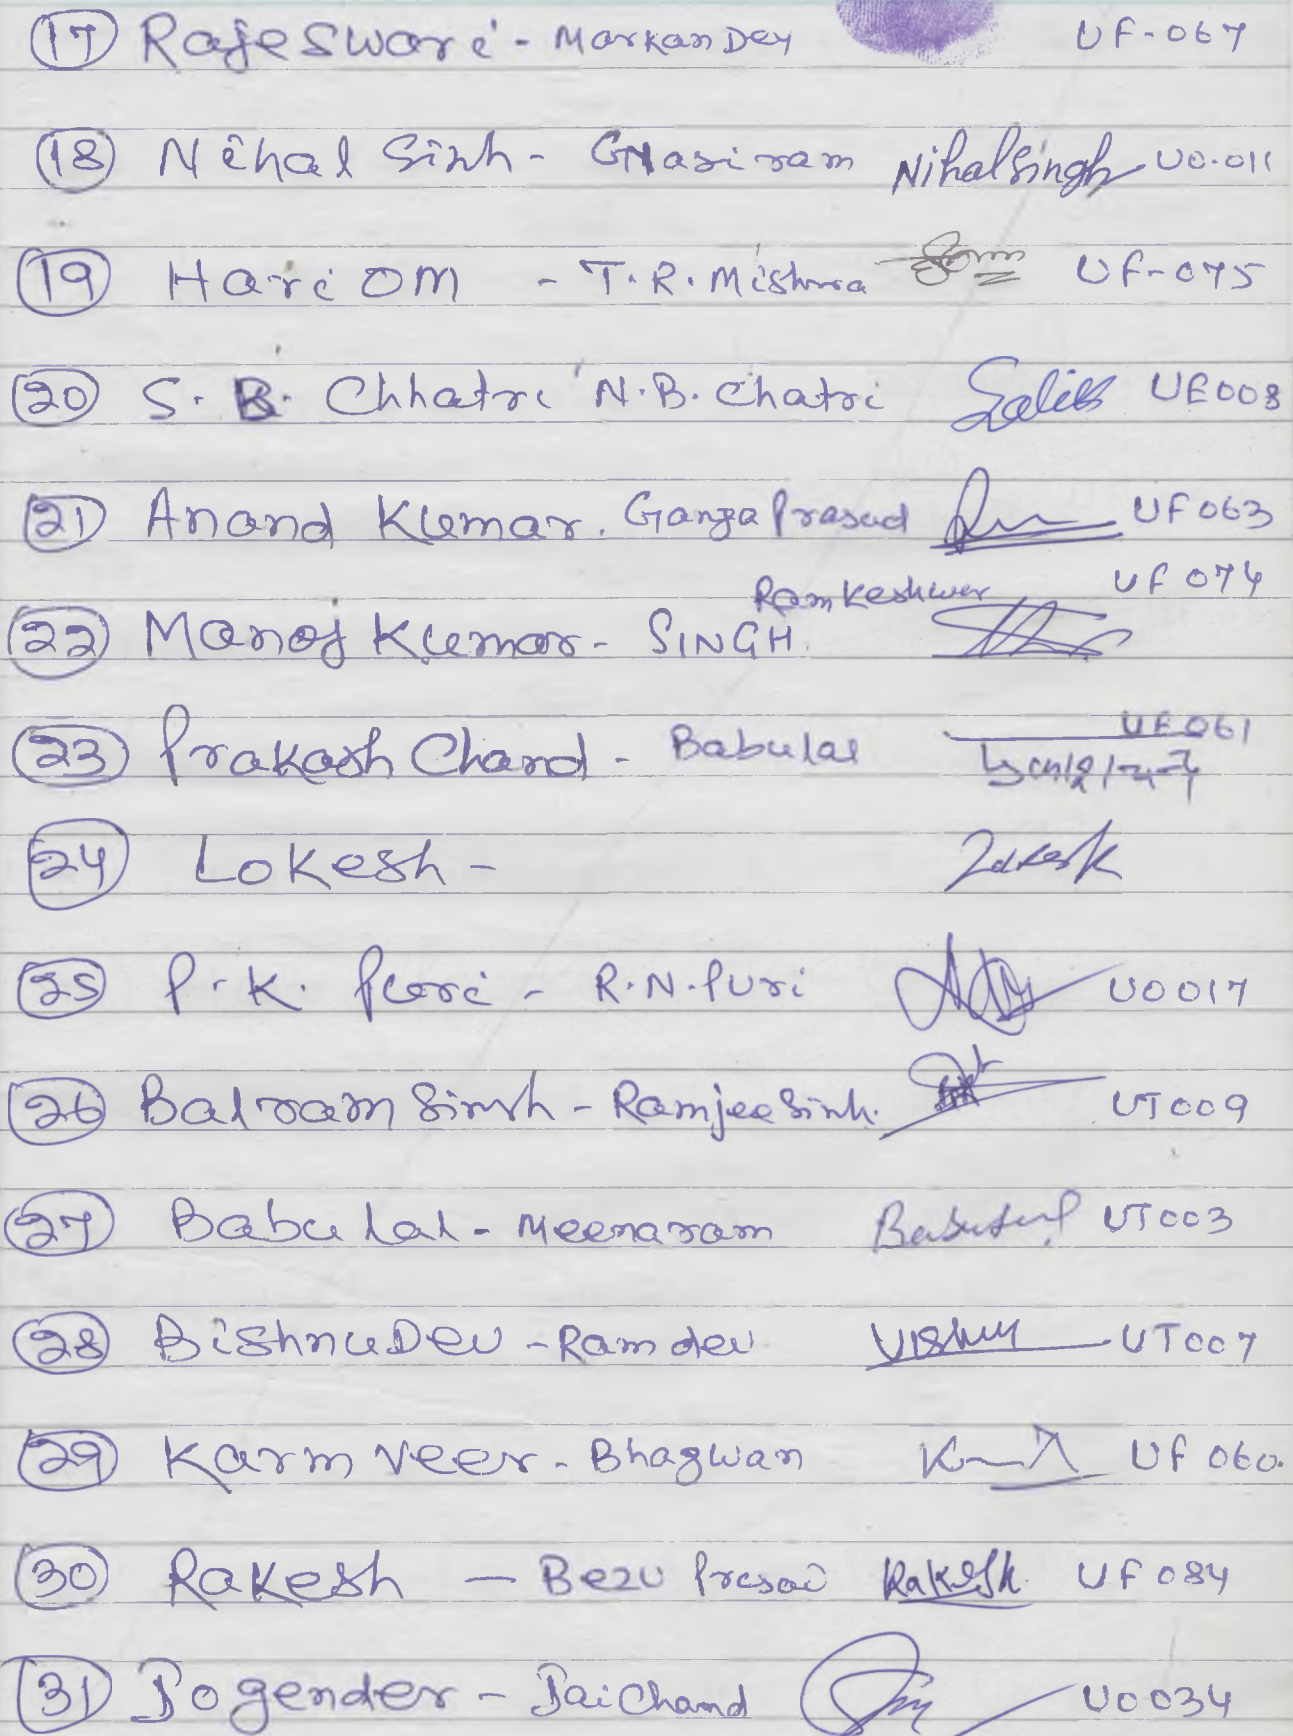 17 Rajeswari - Markan Dey UF-067
18 Nihal Sinh - Ghasiram Nihal Singh UO-011
19 Hari OM - T.R. Mishra UF-075
20 S. B. Chhatri N.B. Chatri UE008
21 Anand Kumar. Ganga Prasad UF063
Ramkeshwer UF 074
22 Manoj Kumar - SINGH.
23 Prakash Chand - Babulal UF061
24 Lokesh - Lokesh
25 P. K. Puri - R.N. Puri UO017
26 Balram Sinsh - Ramjee Sinh. UT009
27 Babu Lal - Meenaram Babulal UT003
28 Bishnu Dev - Ram dev Vishnu UT007
29 Karm veer - Bhagwan UF 060.
30 Rakesh - Rakesh UF 084
31 Jogender - Jai Chand UO034